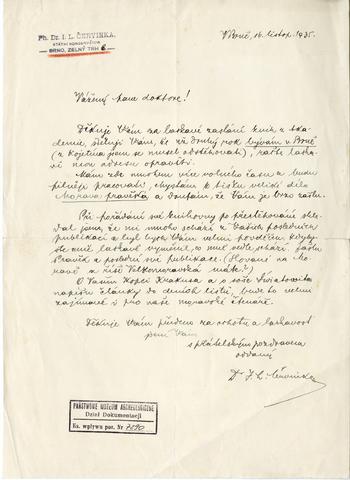 Ph. Dr. I. L. ČERVINKA,
STÁTNÍ KONSERVÁTOR
BRNO, ZELNÝ TRH 6
V Brně, 16. listop. 1935.
Vážený pane doktore!
Děkuji Vám za laskavé zaslání knih z Aka-
demie, Vám, že už druhý rok bývám v Brně
(z Kojetína jsem se musel odstěhovati), račte laska-
vě mou adresu opraviti.
Mám zde mnohem více volného času a budu
pilněji pracovati, chystám k tisku veliké dílo
Morava pravěká a doufám, že Vám je brzo zašlu.
Při pořádání své knihovny po přestěhování shle-
dal jsem, že mi mnoho schází z Vašich posledních
publikací a byl bych Vám velmi povděčen kdyby-
ste mně, laskavě vyměnil, co mně ode schází. Zašlu
a poslední své publikace. (Slované na Mo-
ravě a říše Velkomoravská máte?)
O Vašem Kopci Krakusa a o soše Światowita
napíšu články do denních listů, bude to velmi
zajímavé i pro naše moravské čtenáře.
Děkuje Vám předem za ochotu a laskavost
jsem Vám
s přátelským pozdravem
oddaný
Dr I. L. Červinka
PAŃSTWOWE MUZEUM ARCHEOLOGICZNE
Dział Dokumentacji
Ks. wpływu poz. Nr 7090